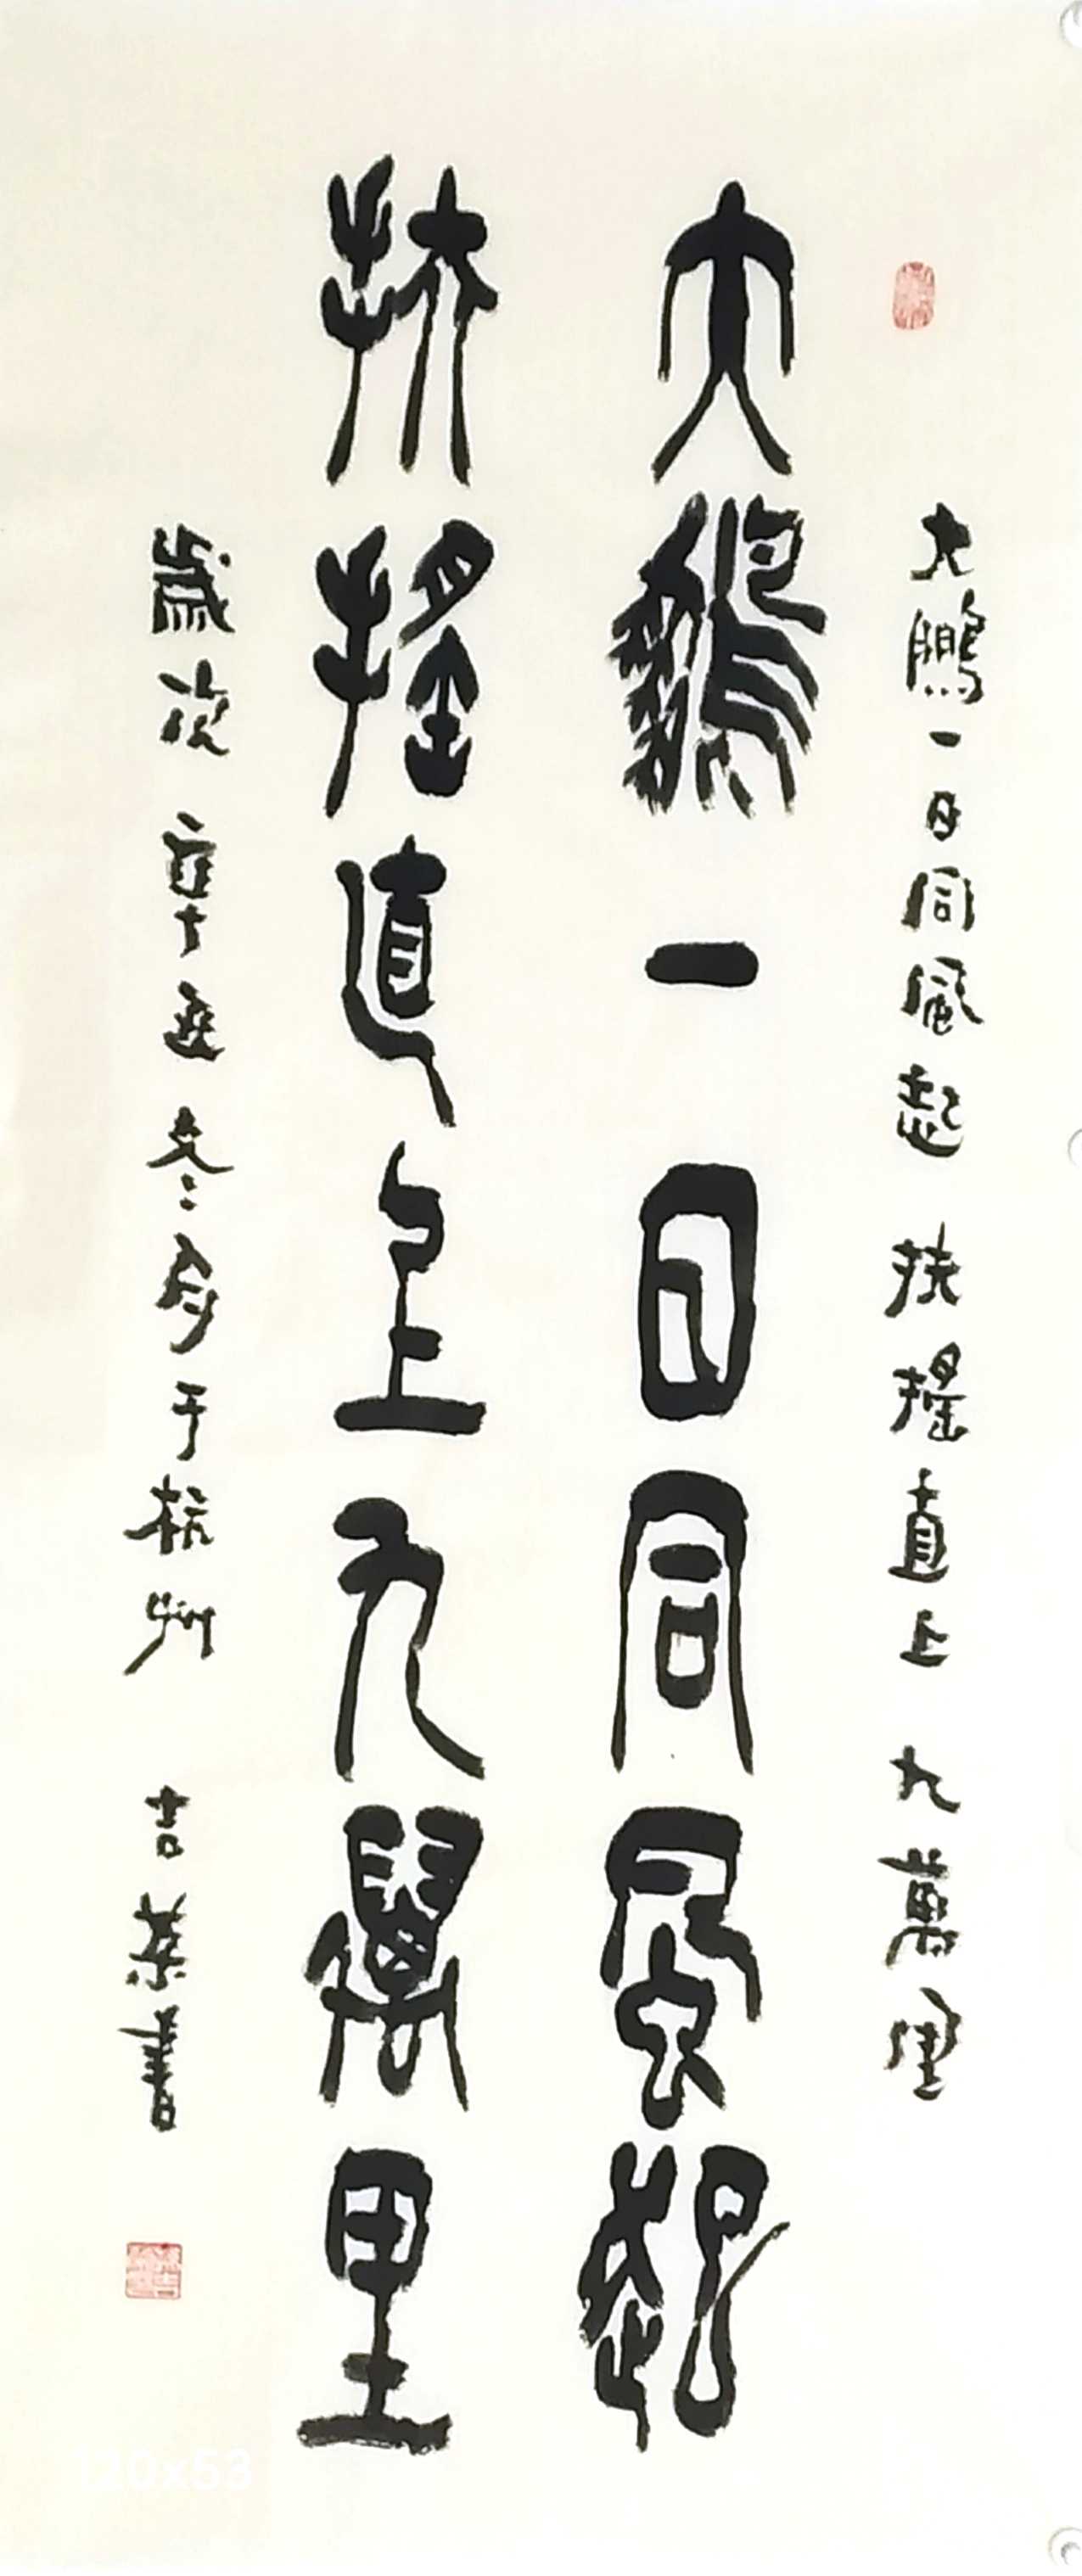 大鹏一日同風起扶摇直上九萬里
大鵬一日同風起
扶摇直上九萬里
歲次辛丑冬月于杭州 吉葉書
120x53